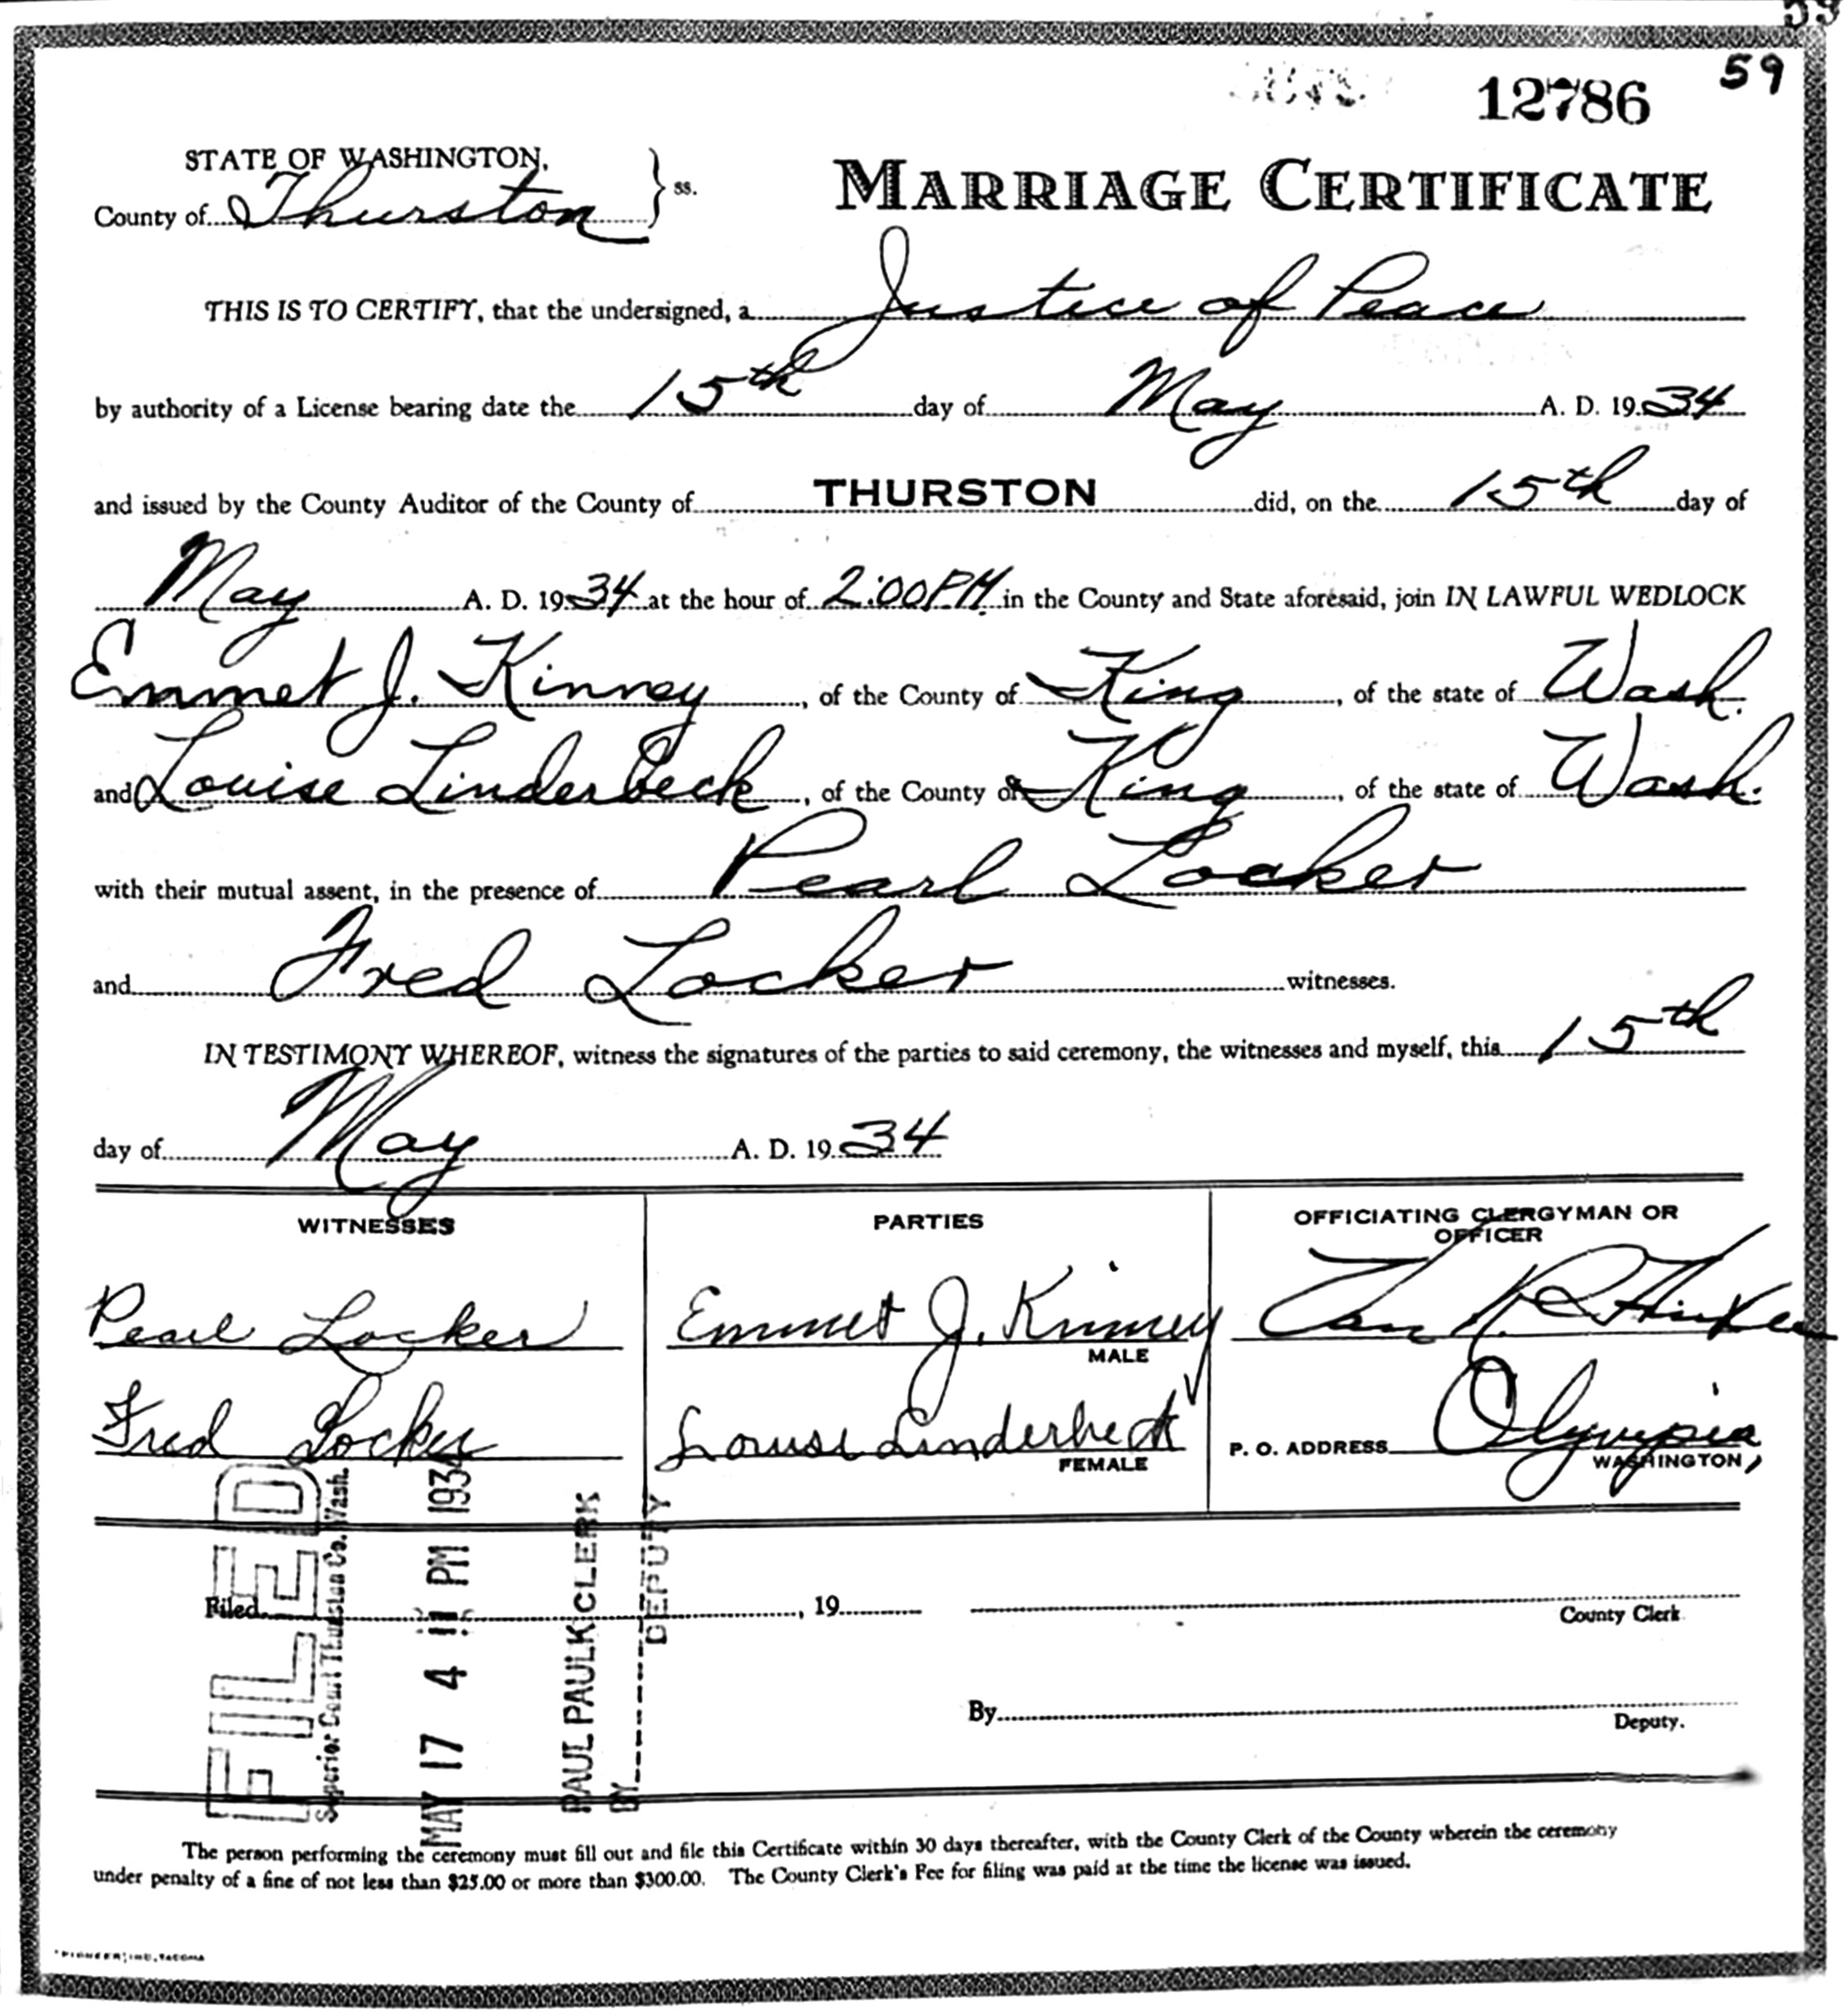 59
59
12786
STATE OF WASHINGTON,
County of Thurston } ss.
MARRIAGE CERTIFICATE
THIS IS TO CERTIFY, that the undersigned, a Justice of Peace
by authority of a License bearing date the 15th day of May A. D. 1934
and issued by the County Auditor of the County of THURSTON did, on the 15th day of
May A. D. 1934 at the hour of 2:00 PM in the County and State aforesaid, join IN LAWFUL WEDLOCK
Emmet J. Kinney, of the County of King, of the state of Wash.
and Louise Linderbeck, of the County of King, of the state of Wash.
with their mutual assent, in the presence of Pearl Locker
and Fred Locker witnesses.
IN TESTIMONY WHEREOF, witness the signatures of the parties to said ceremony, the witnesses and myself, this 15th
day of May A. D. 1934
WITNESSES
Pearl Locker
Fred Locker
PARTIES
Emmet J. Kinney
MALE
Louise Linderbeck
FEMALE
OFFICIATING CLERGYMAN OR
OFFICER
P. O. ADDRESS Olympia,
WASHINGTON
FILED
Superior Court Thurston Co. Wash.
MAY 17 4 11 PM 1934
PAUL PAULK CLERK
BY DEPUTY
Filed , 19
County Clerk
By
Deputy.
The person performing the ceremony must fill out and file this Certificate within 30 days thereafter, with the County Clerk of the County wherein the ceremony
under penalty of a fine of not less than $25.00 or more than $300.00. The County Clerk's Fee for filing was paid at the time the license was issued.
"PIONEER," INC., TACOMA